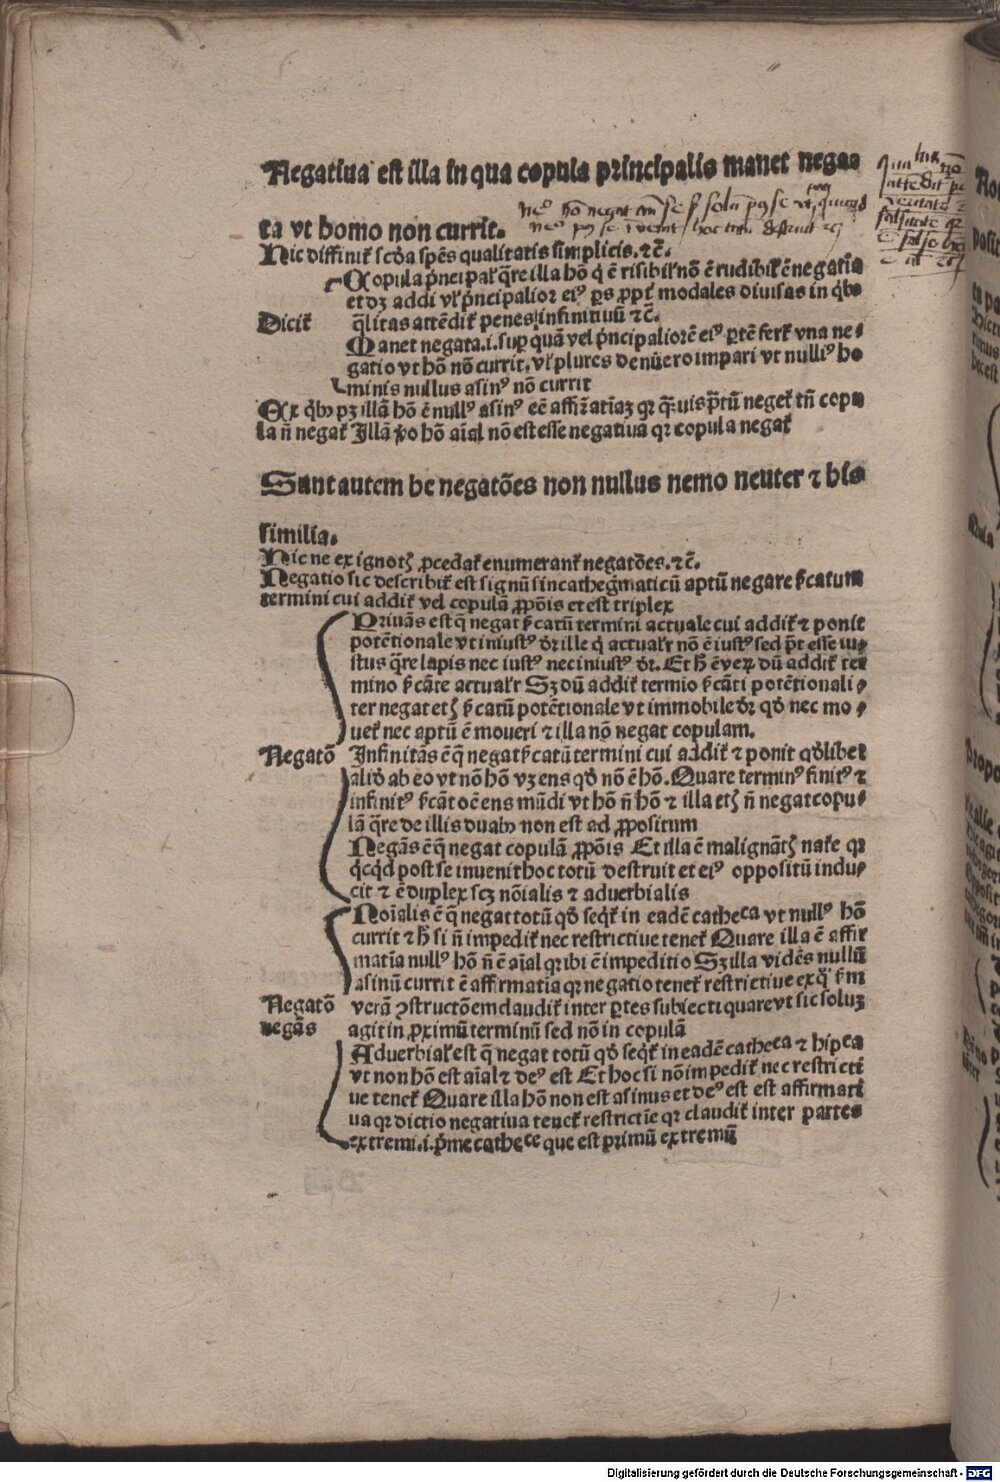 Negatiua est illa in qua copula principalis manet nega⸗
ta vt homo non currit.
Hic diffinit᷑ scḋa spẽs qualitatis simplicis. ⁊c̃.
Copula p̃ncipal᷑ q̃re illa hõ q̇ ẽ risibil᷑ nõ ẽ rudibil᷑ ẽ negatĩa
et dꝫ addi vl᷑ p̃ncipalior eiꝰ ꝑs ꝓpt᷑ modales diuisas in q̇bꝰ
Dicit᷑ q̃litas attẽdit᷑ penes infinitiuũ ⁊c̃.
Manet negata .i. suꝑ quã vel p̃ncipaliorẽ eiꝰ ꝑtẽ fert᷑ vna ne⸗
gatio vt hõ nõ currit. vl᷑ plures de nũero impari vt nulliꝰ ho
minis nullus asinꝰ nõ currit
Ex q̇bꝰ pꝫ illã hõ ẽ nullꝰ asinꝰ eẽ affirmatiaꝫ qꝛ q̃uis p̃tũ neget᷑ tñ copu
la ñ negat᷑ Illã ꝟo hõ aĩal nõ est esse negatiua qꝛ copula negat᷑
Sunt autem he negatões non nullus nemo neuter ⁊ his
similia.
Hic ne ex ignotꝭ ꝓcedat᷑ enumerant᷑ negatões. ⁊c̃.
Negatio sic describit᷑ est signũ sincathegr̃maticũ aptũ negare s̃catum
termini cui addit᷑ vel copulã ꝓpõis et est triplex
Priuãs est q̃ negat s̃catũ termini actuale cui addit᷑ ⁊ ponit
potẽtionale vt iniustꝰ dr̃ ille q̇ actual᷑r nõ ẽ iustꝰ sed p̃t esse iu⸗
stus q̃re lapis nec iustꝰ nec iniustꝰ dr̃. Et h̃ ẽ verꝝ dũ addit᷑ ter
mino s̃cãte actual᷑r Sꝫ dũ addit᷑ termio s̃cãti potẽtionali⸗
ter negat etꝭ s̃catũ potẽtionale vt immobile dr̃ qḋ nec mo⸗
uet᷑ nec aptũ ẽ moueri ⁊ illa nõ negat copulam.
Negatõ Infinitãs ẽ q̃ negat s̃catũ termini cui addit᷑ ⁊ ponit qḋlibet
aliḋ ab eo vt nõ hõ vꝫ ens qḋ nõ ẽ hõ. Quare terminꝰ finitꝰ ⁊
infinitꝰ s̃cãt oẽ ens mũdi vt hõ ñ hõ ⁊ illa etꝭ ñ negat copu⸗
lã q̃re de illis duabꝰ non est ad ꝓpositum
Negãs ẽ q̃ negat copulã ꝓpõis Et illa ẽ malignãtꝭ nat᷑e qꝛ
q̇cq̇d post se inuenit hoc totũ destruit et eiꝰ oppositũ indu⸗
cit ⁊ ẽ duplex scꝫ nõialis ⁊ aduerbialis
Noĩalis ẽ q̃ negat totũ qḋ seq̇t᷑ in eadẽ catheca vt nullꝰ hõ
currit ⁊ h̃ si ñ impedit᷑ nec restrictiue tenet᷑ Quare illa ẽ affir
matĩa nullꝰ hõ ñ ẽ aĩal qꝛ ibi ẽ impeditio Sꝫ illa vidẽs nullũ
asinũ currit ẽ affirmatia qꝛ negatio tenet᷑ restrictiue ex q̇ s̃m
Negatõ verã ꝯstructõem claudit᷑ inter ꝑtes subiecti quare vt sic soluꝫ
negãs agit in ꝓximũ terminũ sed nõ in copulã
Aduerbial᷑ est q̃ negat totũ qḋ seq̇t᷑ in eadẽ catheca ⁊ hipca
vt non hõ est aĩal ⁊ deꝰ est Et hoc si nõ impedit᷑ nec restricti
ue tenet᷑ Quare illa hõ non est asinus et deꝰ est est affirmati
ua qꝛ dictio negatiua tenet᷑ restrictĩe qꝛ claudit᷑ inter partes
extremi .i. p̃me cathece que est primũ extremũ
Digitalisierung gefördert durch die Deutsche Forschungsgemeinschaft - DFG